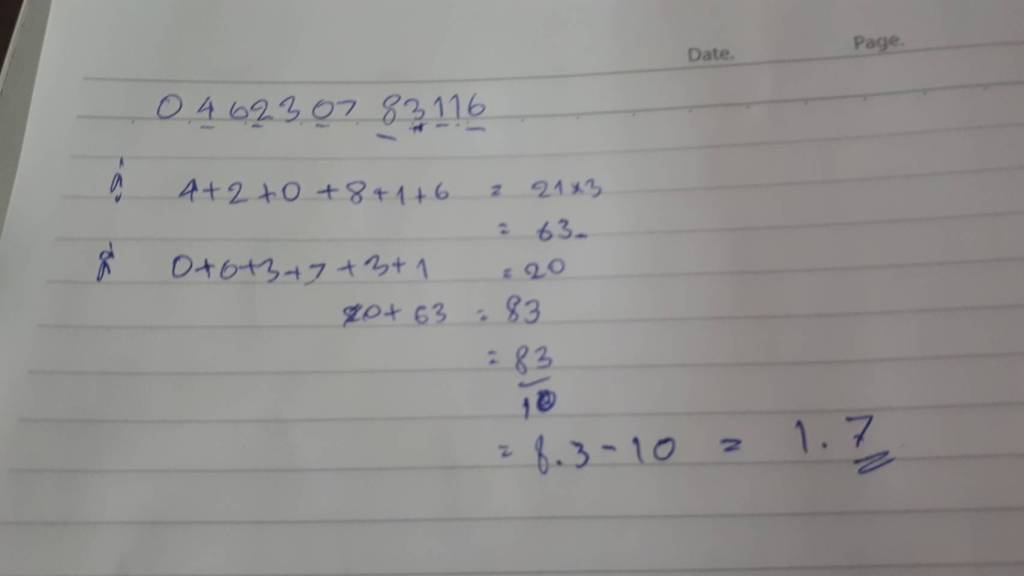 Date. Page.
0 4 6 2 3 0 7 8 3 1 1 6
4+2+0+8+1+6 = 21×3
= 63
0+6+3+7+3+1 = 20
20+63 = 83
= 83
10
= 8.3-10 = 1.7